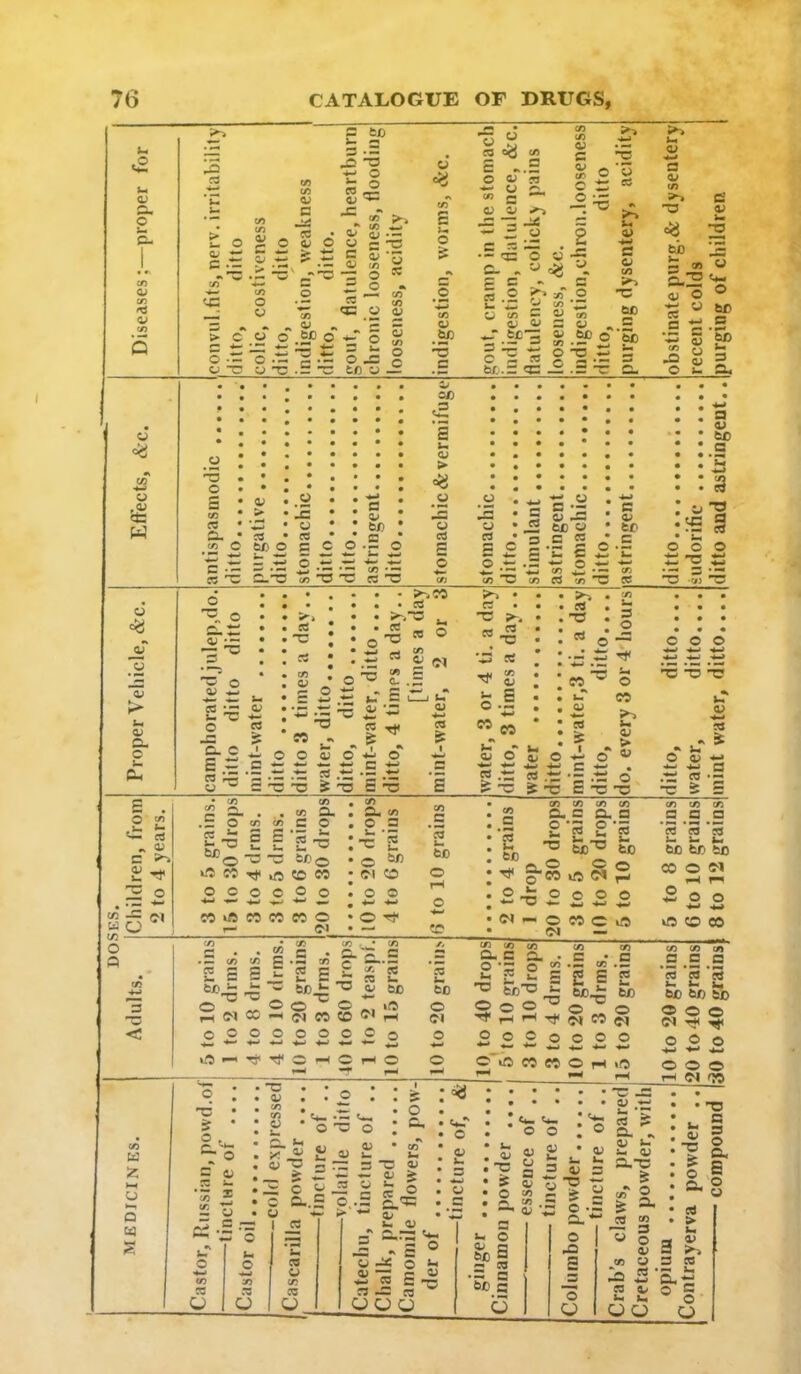 76 CATALOGUE OF DRUGS,
DOSES.
MEDICINES. Adults. Children, from 2 to 4 years. Proper Vehicle, &c. Effects, &c. Diseases;—proper for
Castor, Russian, powd.of 5 to 10 grains 3 to 5 grains. camphorated julep,do. antispasmodic ...... convul.fits, nerv. irritability
——tincture of .... 1 to 2 drms. 15 to 30 drops ditto ditto ditto ditto.............. ditto, ditto
Castor oil............ 4 to 8 drms. 3 to 4 drms. mint-water ........ purgative .......... colic, costiveness
—— cold expressed 4 to 10 drms. 3 to 5 drms. ditto .............. ditto.............. ditto, ditto
Cascarilla powder .... 10 to 20 grains 3 to 6 grains ditto 3 times a day .. stomachic.......... indigestion, weakness
——tincture of .. 1 to 3 drms. 20 to 30 drops water, ditto........ ditto.............. ditto, ditto.
——volatile ditto 40 to 60 drops .......... ditto, ditto ...... ditto.............. gout, flatulence, heartburn
Catechu, tincture of .. 1 to 2 teaspf. 10 to 20 drops mint-water, ditto .... astringent.......... chronic looseness, flooding
Chalk, prepared ...... 10 to 15 grains 4 to 6 grains ditto, 4 times a day.. ditto.............. looseness, acidity
Camomile flowers, pow-
der of ............ 10 to 20 grains 6 to 10 grains mint-water, 2 or 3 [times a day stomachic & vermifuge indigestion, worms, &c.
——tincture of, &
ginger ............ 10 to 40 drops .......... water, 3 or 4 ti. a day stomachic.......... gout, cramp in the stomach
Cinnamon powder .... 5 to 10 grains 2 to 4 grains ditto, 3 times a day.. ditto.............. indigestion, flatulence, &c.
——essence of .. 3 to 10 drops 1 drop water ............ stimulant .......... flatulency, colicky pains
——tincture of .. 3 to 4 drms. 20 to 30 drops ditto.............. astringent.......... looseness, &c.
Columbo powder ...... 10 to 20 grains 3 to 5 grains mint-water,3 ti. a day stomachic.......... indigestion,chron.looseness
——tincture of .. 1 to 3 drms. 10 to 20 drops ditto, ditto.... ditto.............. ditto, ditto
Crab's claws, prepared 15 to 20 grains 5 to 10 grains do. every 3 or 4 hours astringent.......... purging dysentery, acidity
Cretaceous powder, with
opium ............ 10 to 20 grains 5 to 8 grains ditto, ditto.... ditto.............. obstinate purg.& dysentery
Contrayerva powder .. 20 to 40 grains 6 to 10 grains water, ditto.... sudorific .......... recent colds
—— compound 30 to 40 grains 8 to 12 grains mint water, ditto.... ditto and astringent.. purging of children